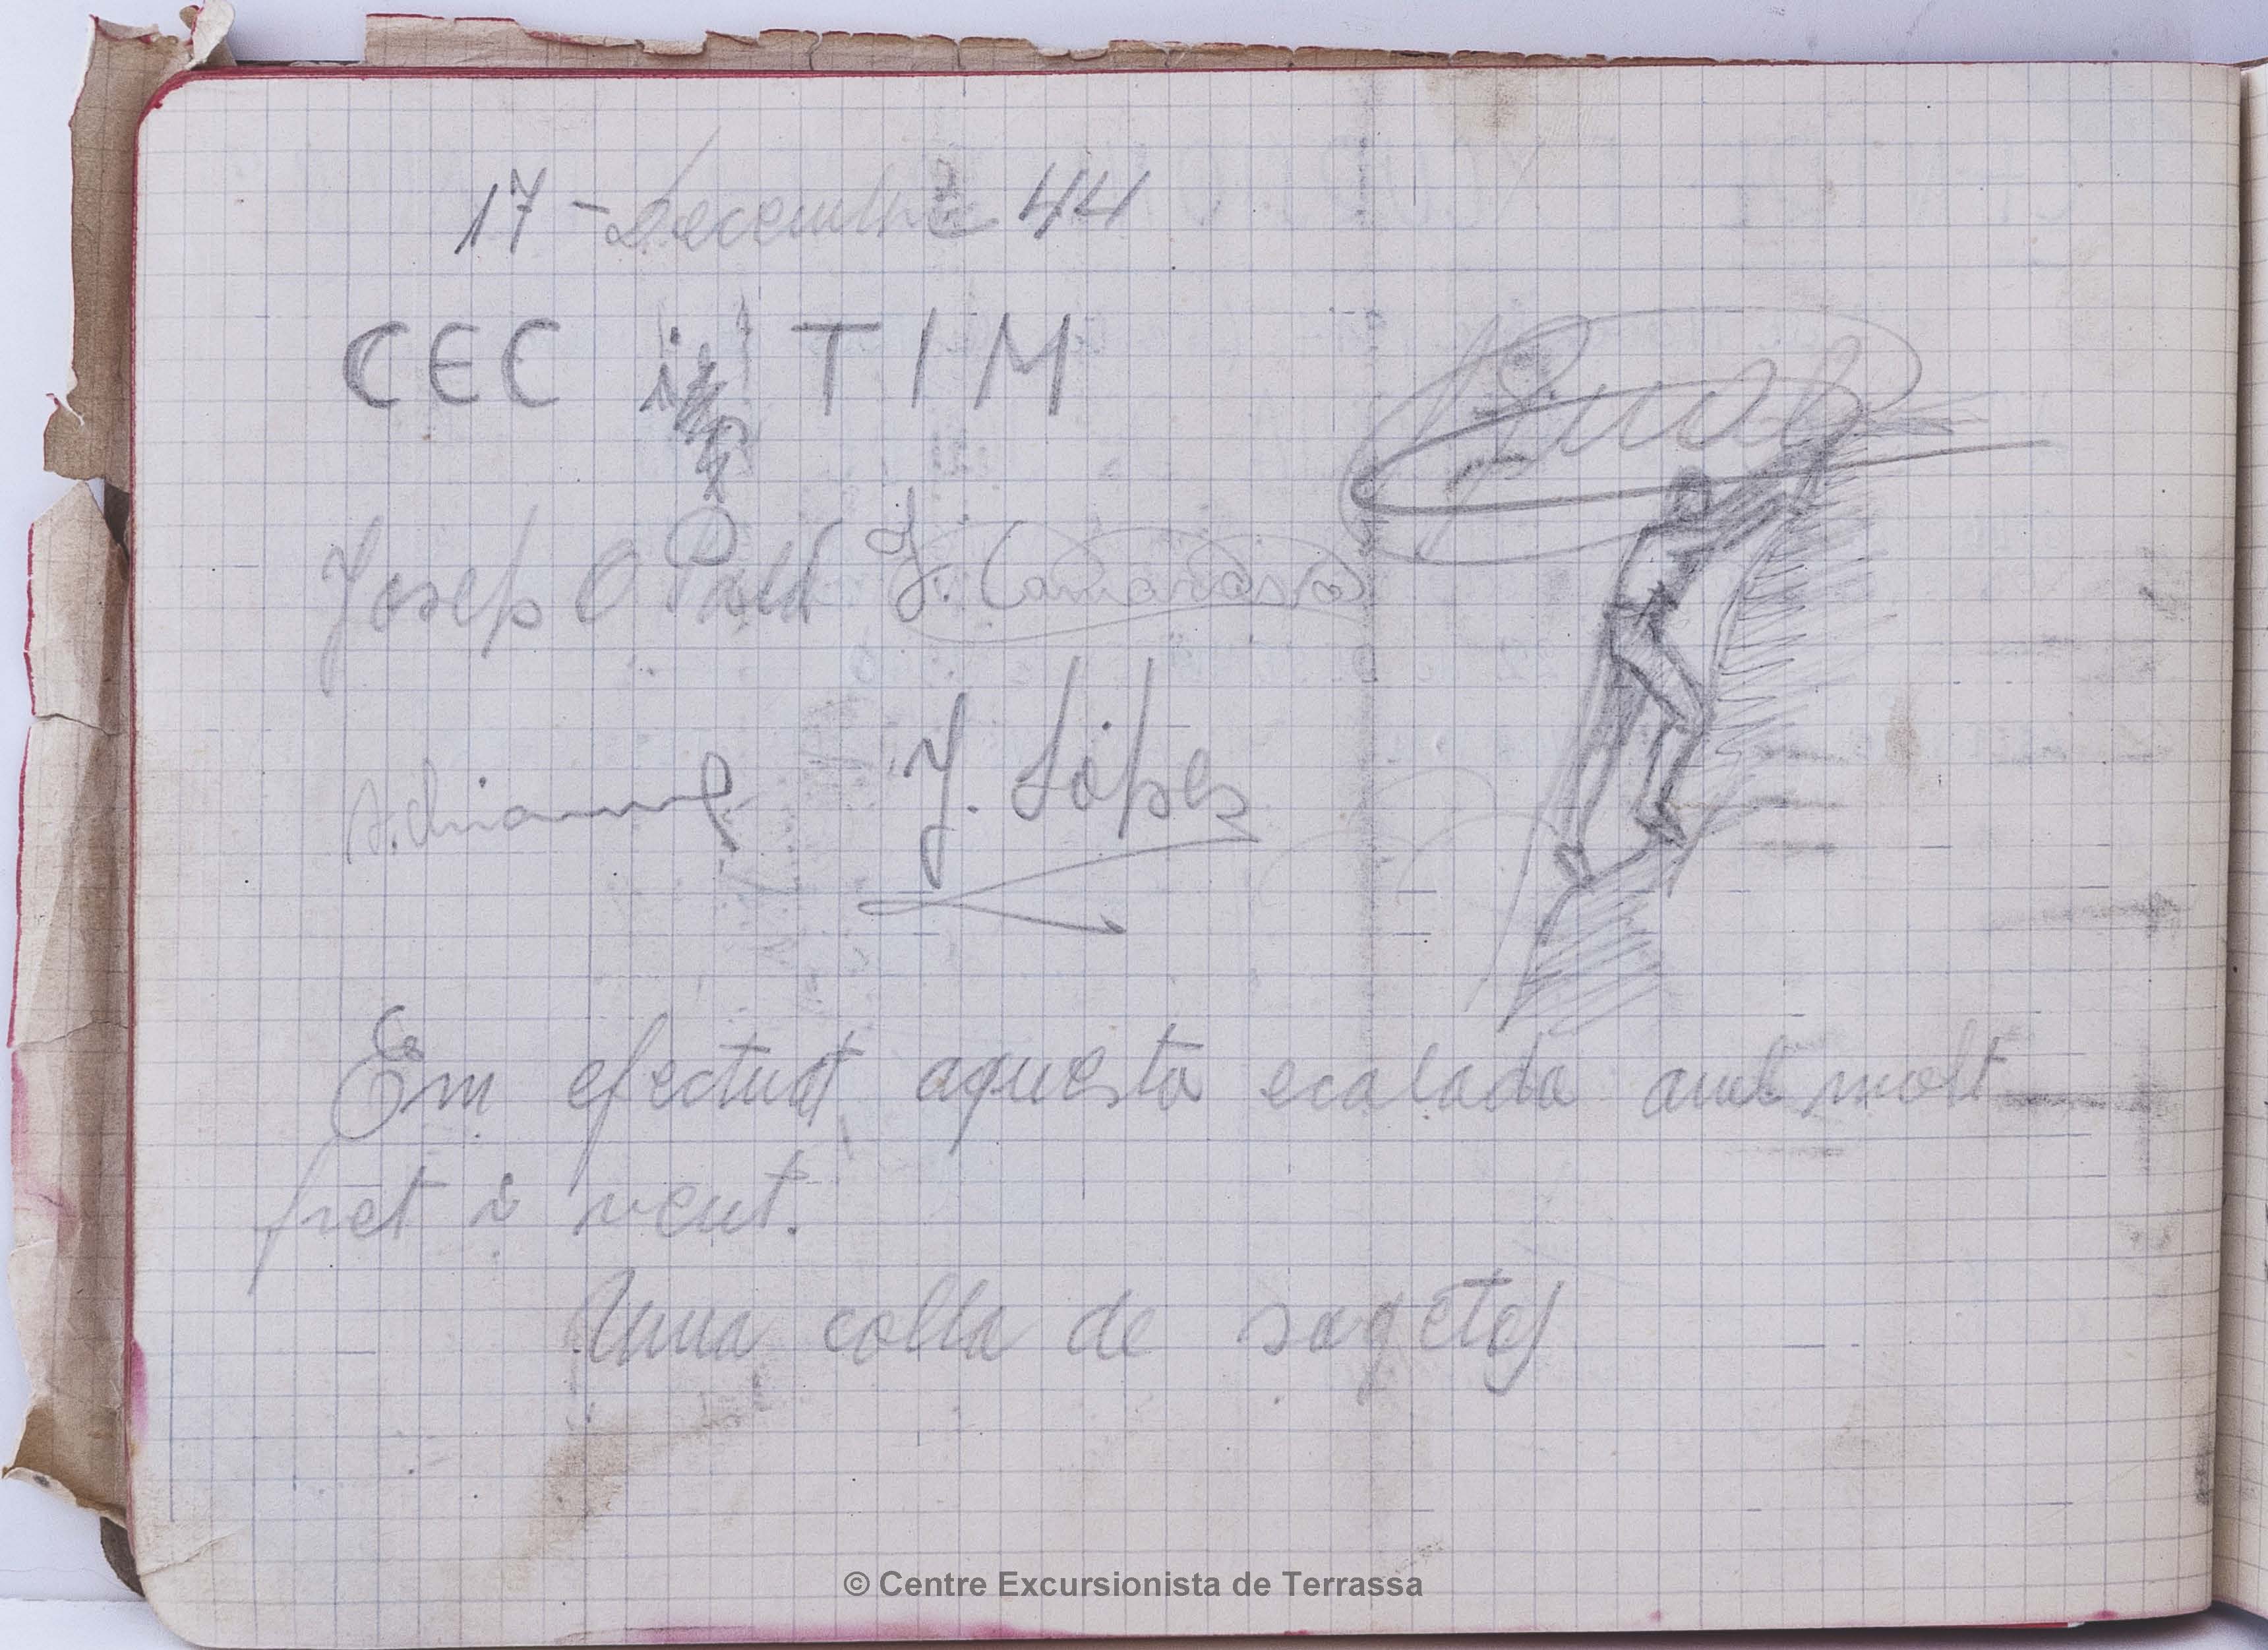 17 - Decembre 44
CEC i TIM
Josep
J. López
Em efectuat aquesta escalada amb molt
fret i vent.
Unna colla de sagetes
© Centre Excursionista de Terrassa